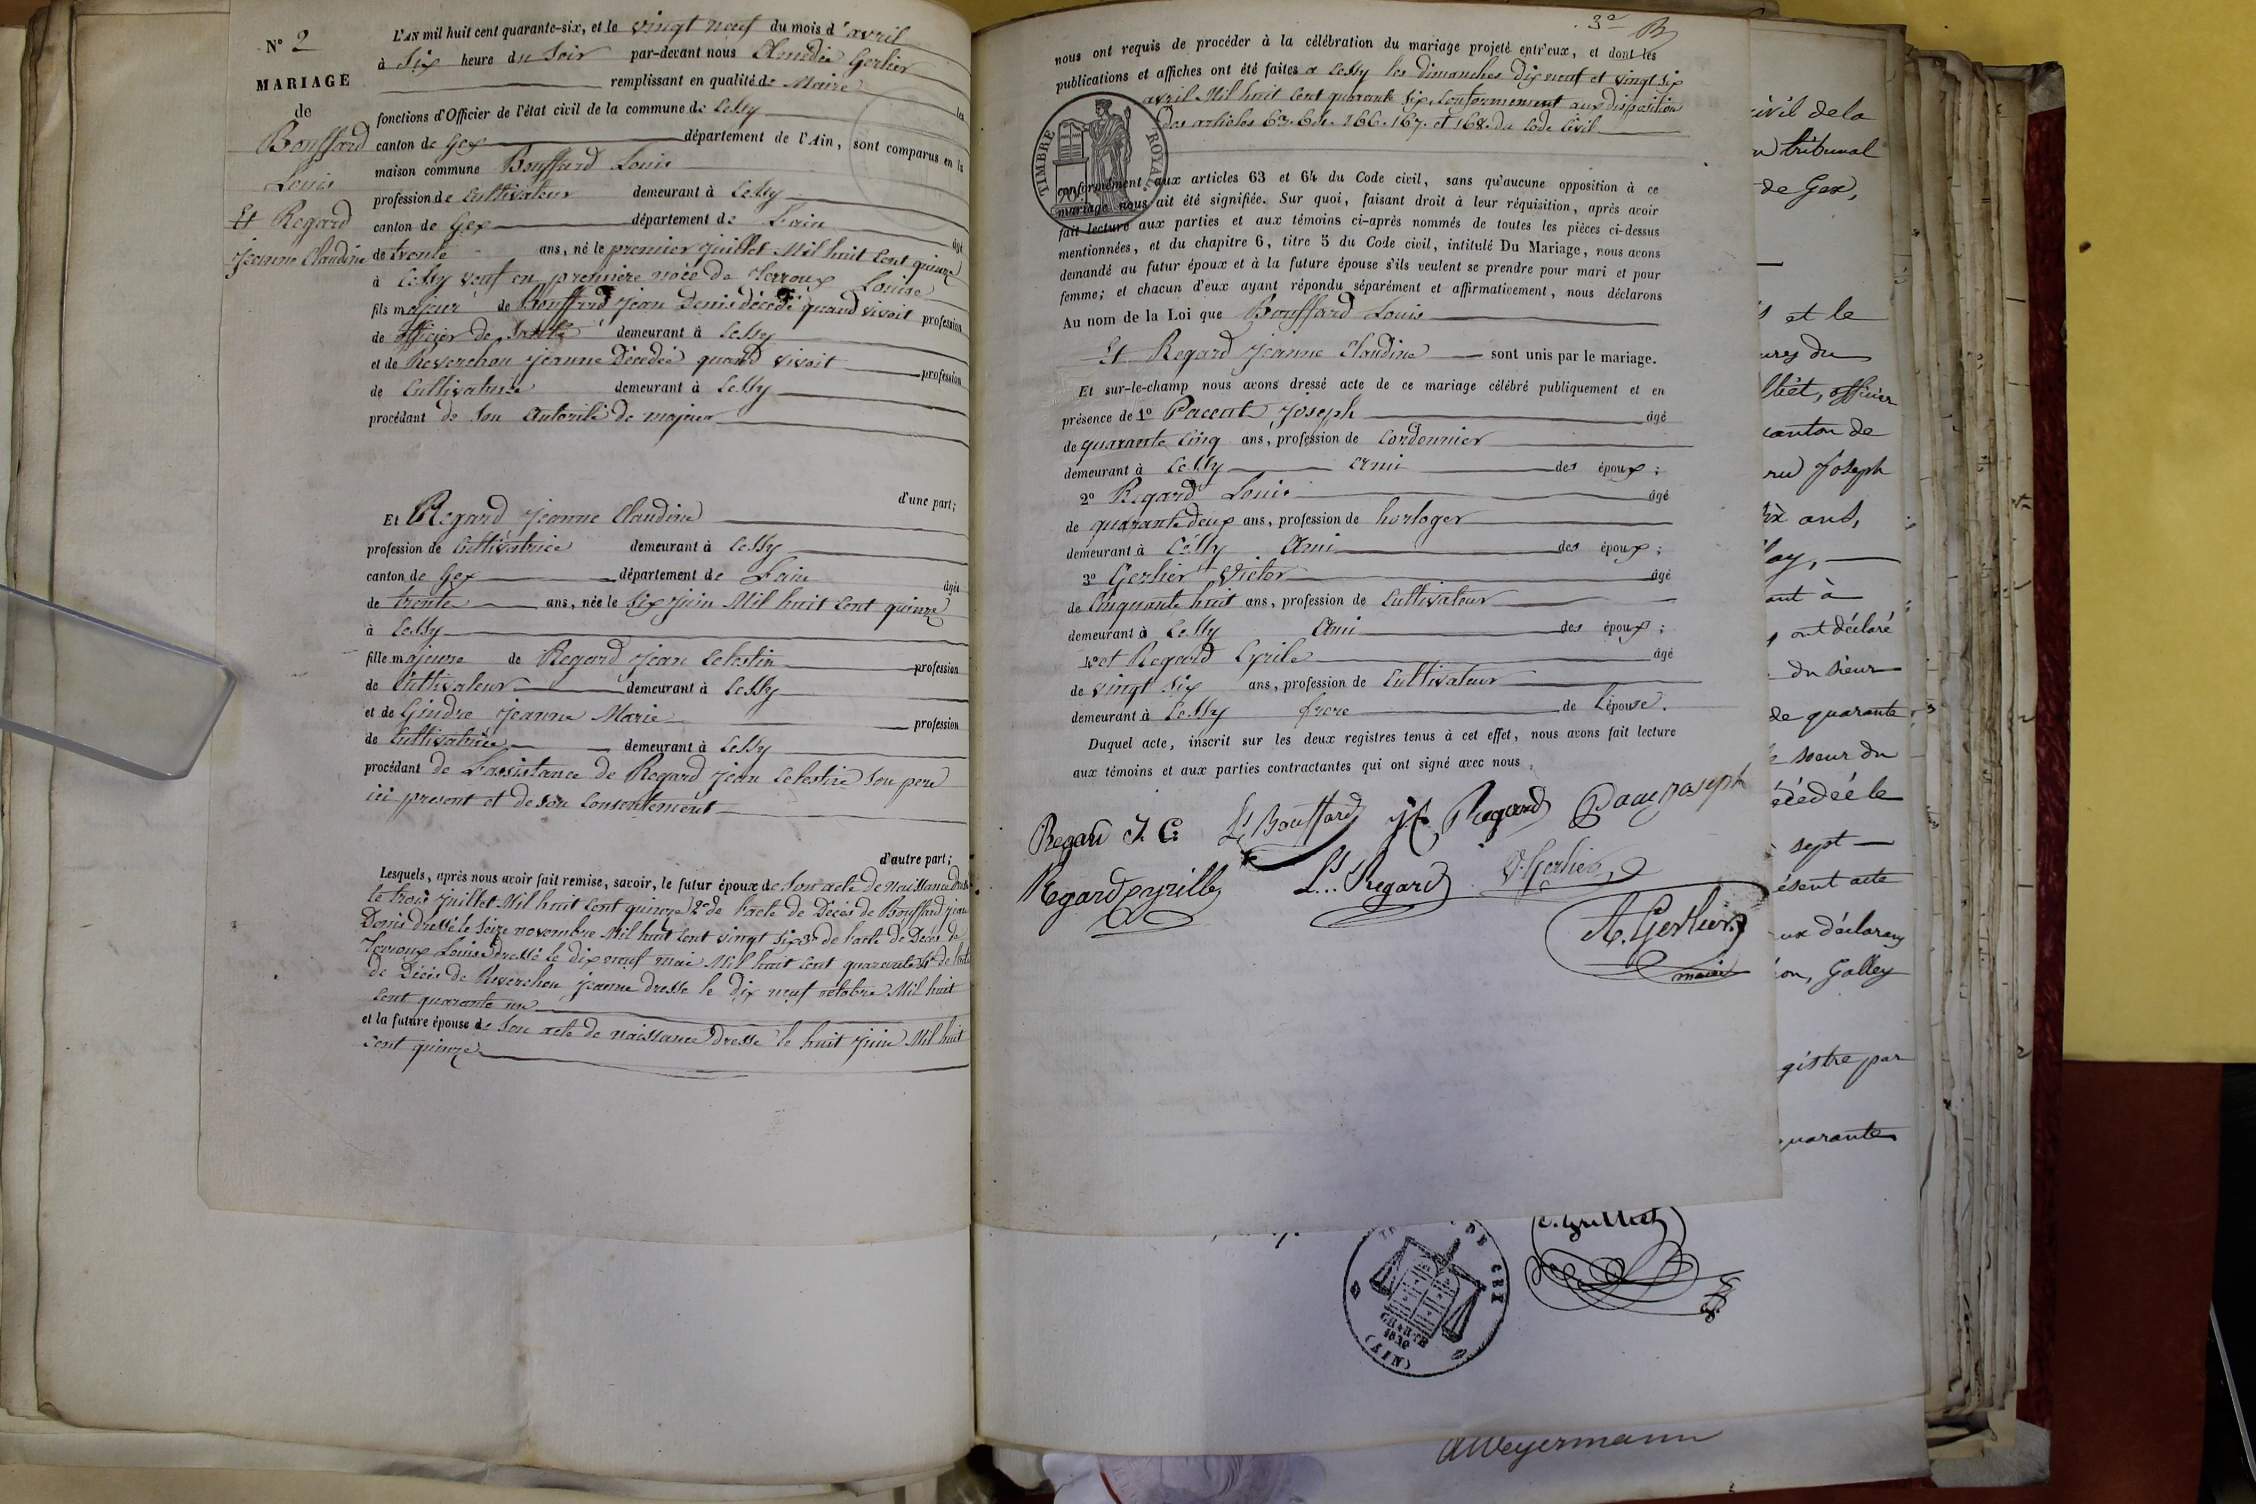 N° 2
MARIAGE
de
Bouffard
Louis
Et Regard
Jeanne Claudine
L'AN mil huit cent quarante-six, et le vingt neuf du mois d'avril
à Six heure du Soir par-devant nous Amédée Gerlier
remplissant en qualité de Maire les
fonctions d'Officier de l'état civil de la commune de Cessy
canton de Gex département de l'Ain, sont comparus en la
maison commune Bouffard Louis
profession de Cultivateur demeurant à Cessy
canton de Gex département de L'ain
âgé
de trente ans, né le premier Juillet Mil huit Cent quinze
à Cessy veuf en première noce de Terroux Louise
fils majeur de Bouffard Jean Denis décédé quand vivoit profession
de officier de Santé demeurant à Cessy
et de Reverchon Jeanne Décedée quand vivoit profession
de Cultivatrice demeurant à Cessy
procédant de Son Autorité de majeur
d'une part;
Et Regard Jeanne Claudine
profession de Cultivatrice demeurant à Cessy
canton de Gex département de L'ain
âgée
de trente ans, née le Six Juin Mil huit Cent quinze
à Cessy
fille majeure de Regard Jean Celestin profession
de Cultivateur demeurant à Cessy
et de Gindre Jeanne Marie profession
de Cultivatrice demeurant à Cessy
procédant de L'assistance de Regard Jean Celestin Son pere
ici present et de son Consentement
d'autre part;
Lesquels, après nous avoir fait remise, savoir, le futur époux de Son acte de Naissance Dressé
le trois Juillet Mil huit Cent quinze 2° de l'acte de Décès de Bouffard Jean
Denis dressé le Seize novembre Mil huit Cent vingt Six 3° de l'acte de Décès de
Terroux Louise dressé le dix neuf mai Mil huit Cent quarante 4° de l'acte
de Décès de Reverchon Jeanne dressé le dix neuf octobre Mil huit
Cent quarante un
et la future épouse de Son acte de naissance Dressé le huit Juin Mil huit
Cent quinze
3e
nous ont requis de procéder à la célébration du mariage projeté entr'eux, et dont les
publications et affiches ont été faites a Cessy les dimanches dix neuf et vingt Six
avril Mil huit Cent quarante Six, Conformement aux disposition
Des articles 63. 64. 166. 167. et 168. du Code Civil
TIMBRE ROYAL
conformément aux articles 63 et 64 du Code civil, sans qu'aucune opposition à ce
mariage nous ait été signifiée. Sur quoi, faisant droit à leur réquisition, après avoir
fait lecture aux parties et aux témoins ci-après nommés de toutes les pièces ci-dessus
mentionnées, et du chapitre 6, titre 5 du Code civil, intitulé Du Mariage, nous avons
demandé au futur époux et à la future épouse s'ils veulent se prendre pour mari et pour
femme; et chacun d'eux ayant répondu séparément et affirmativement, nous déclarons
Au nom de la Loi que Bouffard Louis
Et Regard Jeanne Claudine sont unis par le mariage.
Et sur-le-champ nous avons dressé acte de ce mariage célébré publiquement et en
présence de 1° Joseph âgé
de quarante Cinq ans, profession de Cordonnier
demeurant à Cessy ami des époux;
2° Regard Louis âgé
de quarante deux ans, profession de horloger
demeurant à Cessy Ami des époux;
3° Gerlier Victor âgé
de Cinquante huit ans, profession de Cultivateur
demeurant à Cessy Ami des époux;
4° et Regard Cyrile âgé
de vingt Six ans, profession de Cultivateur
demeurant à Cessy frere de L'épouse.
Duquel acte, inscrit sur les deux registres tenus à cet effet, nous avons fait lecture
aux témoins et aux parties contractantes qui ont signé avec nous.
Regard J. C. Ls Bouffard JC Regard Joseph
Regard cyrille Ls. Regard V. Gerlier
A. Gerlier
maire
civil de la
tribunal
de Gex,
et le
du
officier
canton de
Joseph
ans,
ant à
ont déclaré
du Sieur
de quarante
soeur du
décédée le
sept
ésent acte
Galley
gistre par
quarante
DE GEX
CHARTE
1830
(AIN)
AWeyermann